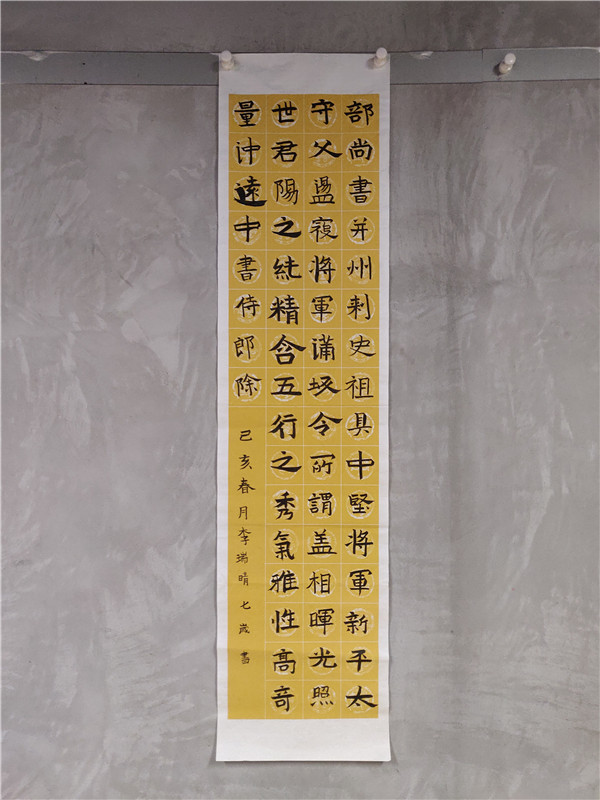 部尚書并州刺史祖具中堅将軍新平太
守父盪寇将軍蒲坂令所謂盖相暉光照
世君陽之純精含五行之秀氣雅性高奇
量沖遠中書侍郎除
己亥春月李瑞晴七歲書